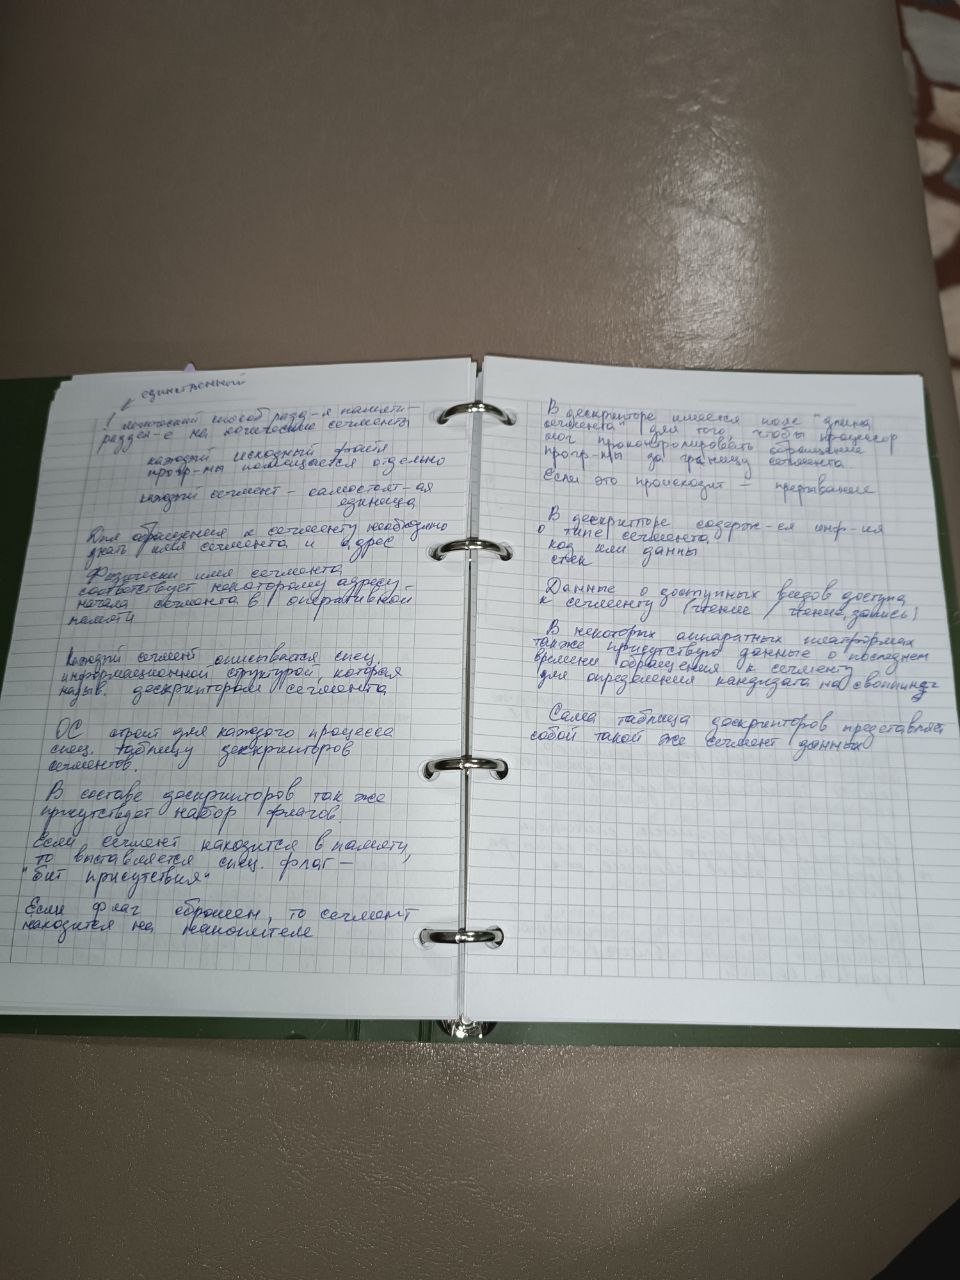 единственный
1 логический способ разд-я памяти -
раздел-е на логические сегменты
каждый исходный файл
прогр-мы помещается отдельно
каждый сегмент - самостоят-ая
единица
Для обращения к сегменту необходимо
указать имя сегмента и адрес
Физически имя сегмента
соответствует некоторому адресу
начала сегмента в оперативной
памяти
Каждый сегмент описывается спец.
информационной структурой, которая
назыв. дескриптором сегмента
ОС строит для каждого процесса
спец. таблицу дескрипторов
сегментов.
В составе дескрипторов так же
присутствует набор флагов.
Если сегмент находится в памяти,
то выставляется спец. флаг -
"бит присутствия"
Если флаг сброшен, то сегмент
находится на накопителе
В дескрипторе имеется поле "длина
сегмента" для того, чтобы процессор
мог проконтролировать обращение
прогр-мы за границу сегмента
Если это происходит - прерывание
В дескрипторе содерж-ся инф-ия
о типе сегмента
код или данны
стек
Данные о доступных видов доступа
к сегменту (чтение / чтение, запись)
В некоторых аппаратных платформах
также присутствую данные о последнем
времени обращения к сегменту
для определения кандидата на своппинг
Сама таблица дескрипторов представляет
собой такой же сегмент данных